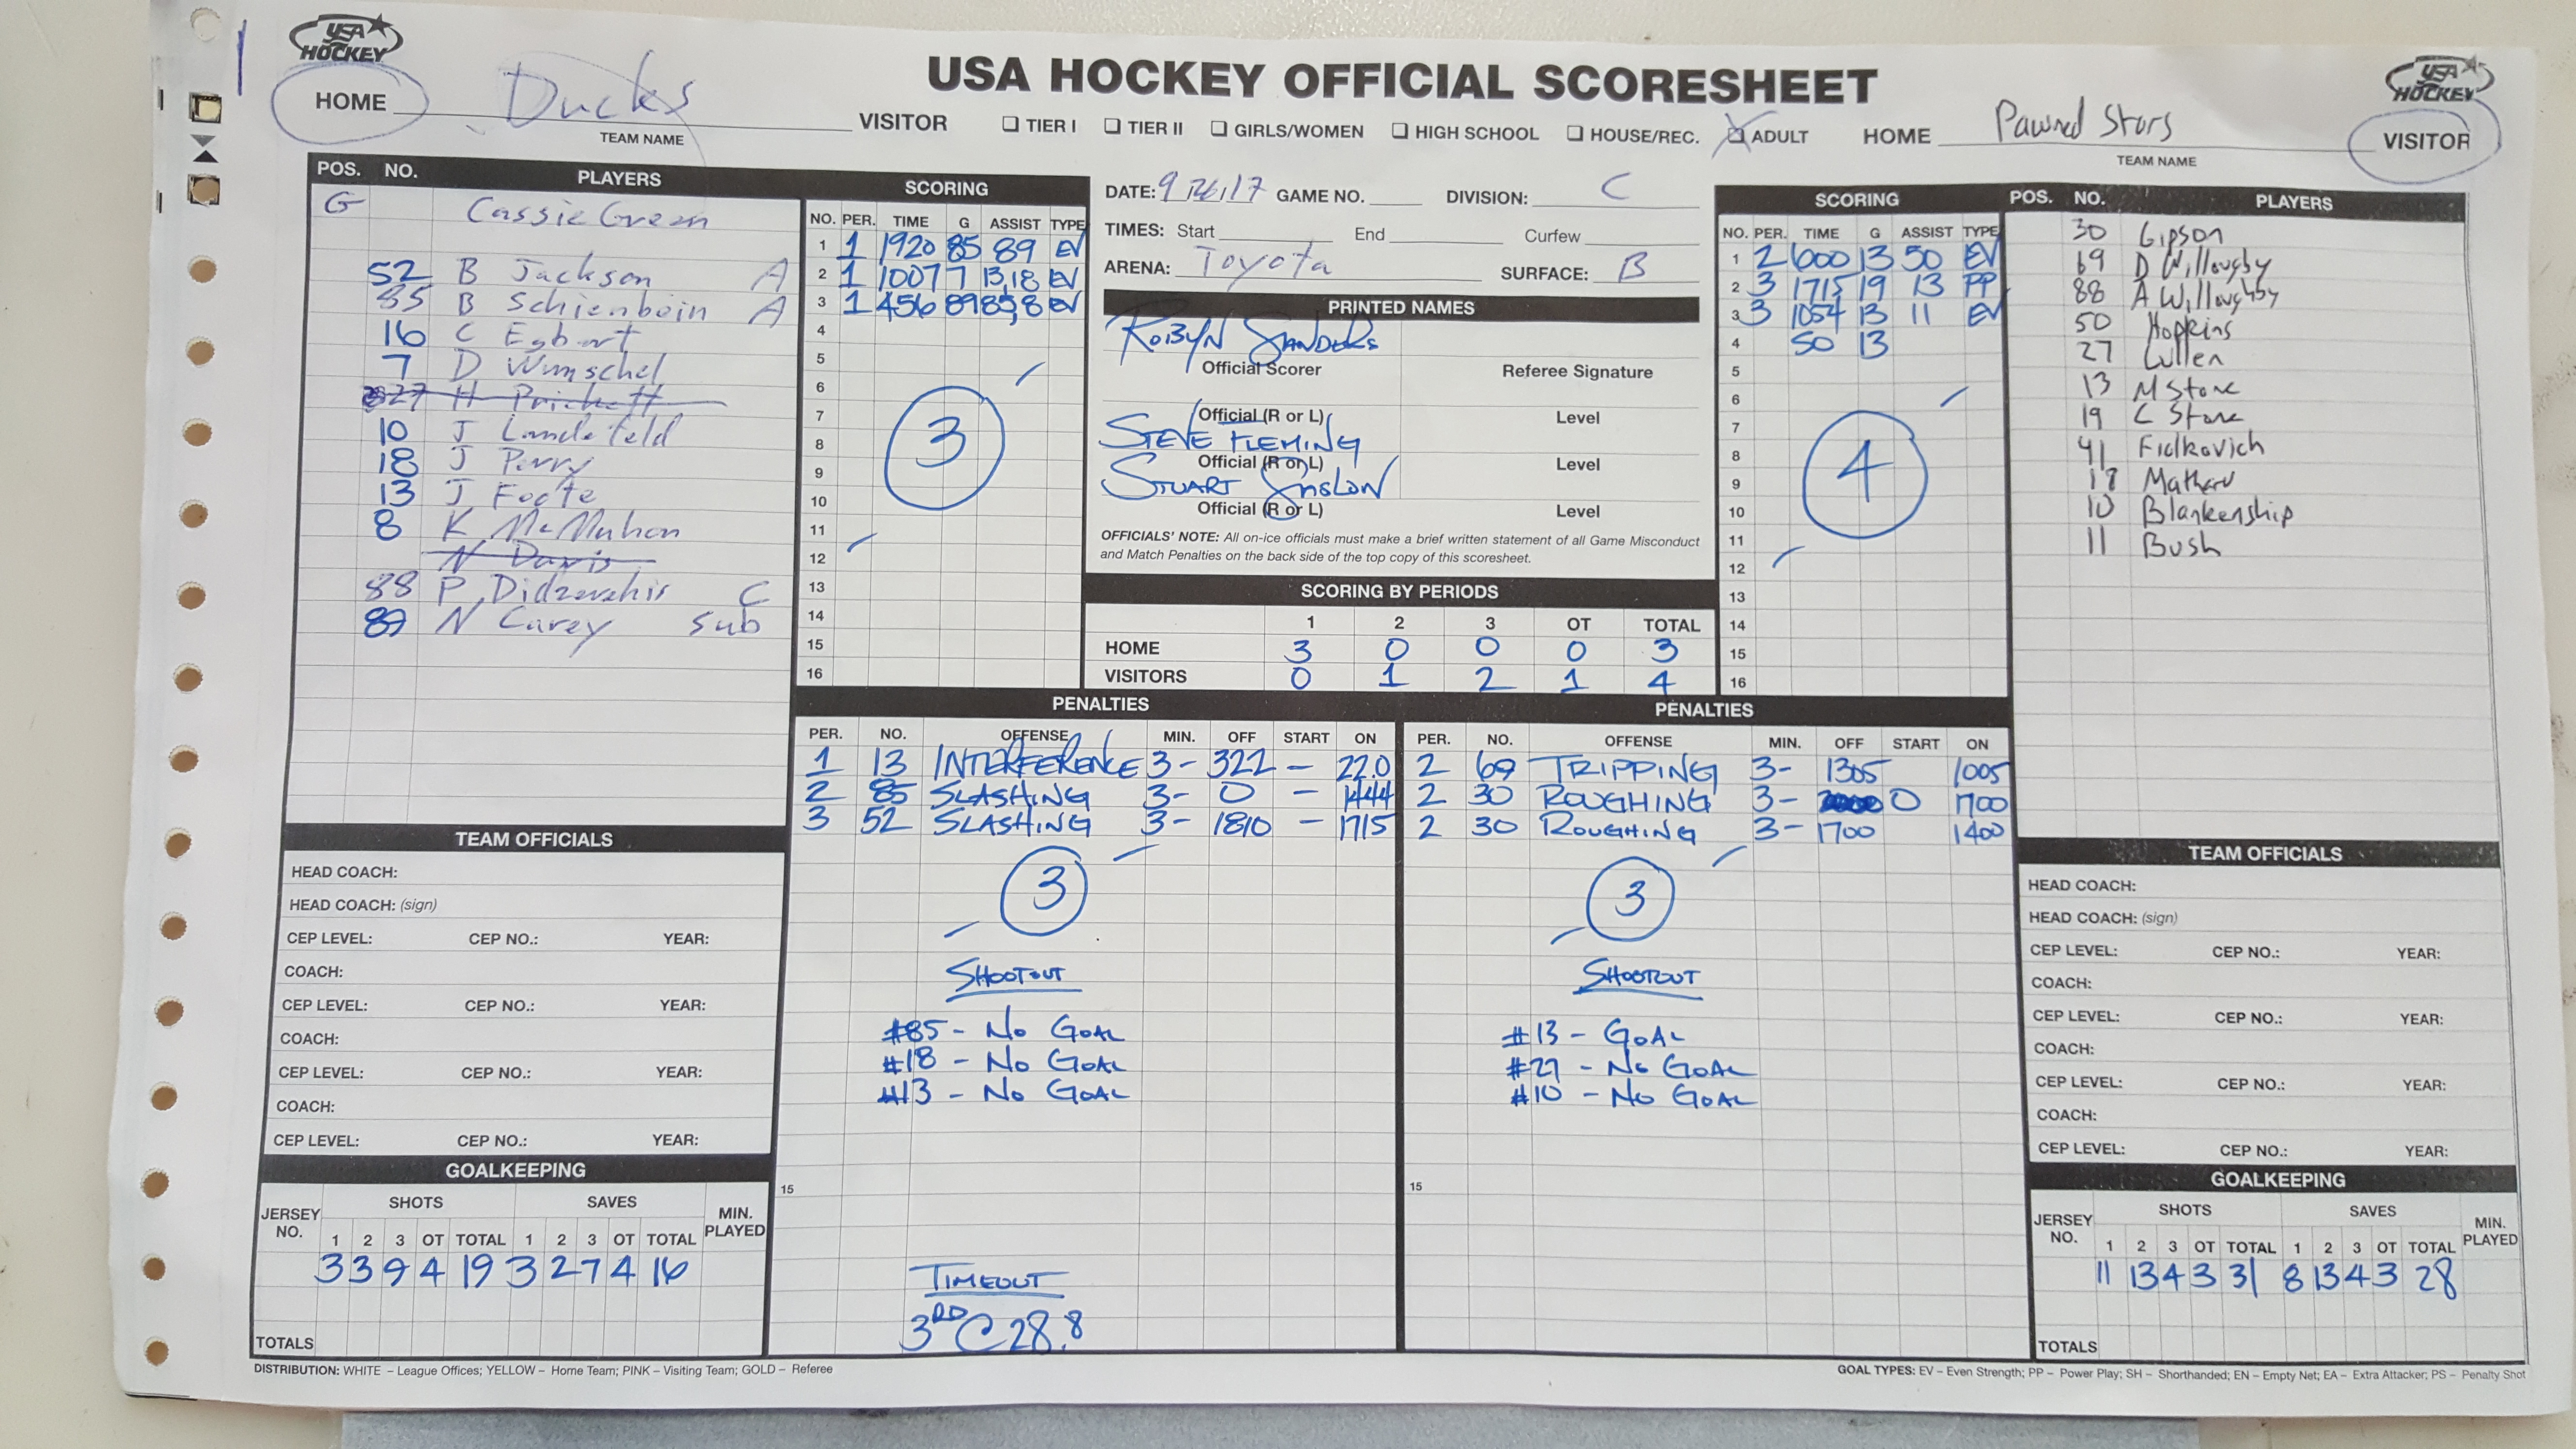 USA HOCKEY
USA HOCKEY OFFICIAL SCORESHEET
USA HOCKEY
HOME Ducks VISITOR
TEAM NAME
TIER I TIER II GIRLS/WOMEN HIGH SCHOOL HOUSE/REC. ADULT
HOME Pawned Stars VISITOR
TEAM NAME
POS. NO. PLAYERS
G Cassie Green
52 B Jackson A
85 B Schienbein A
16 C Egbert
7 D Wunschel
27 H Prickett
10 J Landefeld
18 J Perry
13 J Foote
8 K McMahon
N Davis
88 P. A C
89 N Carey Sub
SCORING
NO. PER. TIME G ASSIST TYPE
1 1 1920 85 89 EV
2 1 1007 7 13,18 EV
3 1 456 89 85,8 EV
4
5
6
7
8
9
10
11
12
13
14
15
16
3
DATE: 9/26/17 GAME NO. DIVISION: C
TIMES: Start End Curfew
ARENA: Toyota SURFACE: B
PRINTED NAMES
ROBYN SANDERS
Official Scorer Referee Signature
Official (R or L) Level
STEVE FLEMING
Official (R or L) Level
STUART
Official (R or L) Level
OFFICIALS' NOTE: All on-ice officials must make a brief written statement of all Game Misconduct
and Match Penalties on the back side of the top copy of this scoresheet.
SCORING BY PERIODS
1 2 3 OT TOTAL
HOME 3 0 0 0 3
VISITORS 0 1 2 1 4
SCORING
NO. PER. TIME G ASSIST TYPE
1 2 600 13 50 EV
2 3 1715 19 13 PP
3 3 1054 13 11 EV
4 SO 13
5
6
7
8
9
10
11
12
13
14
15
16
4
POS. NO. PLAYERS
30 Gipson
69 D Willoughby
88 A Willoughby
50 Hopkins
27 Cullen
13 M Stone
19 C Stone
41 Fialkovich
18
10 Blankenship
11 Bush
PENALTIES
PER. NO. OFFENSE MIN. OFF START ON
1 13 INTERFERENCE 3- 322 - 22.0
2 85 SLASHING 3- 0 - 1444
3 52 SLASHING 3- 1810 - 1715
3
SHOOTOUT
#85 - NO GOAL
#18 - NO GOAL
#13 - NO GOAL
15
TIMEOUT
3RD C 28.8
PENALTIES
PER. NO. OFFENSE MIN. OFF START ON
2 69 TRIPPING 3- 1305 1005
2 30 ROUGHING 3- 0 1700
2 30 ROUGHING 3- 1700 1400
3
SHOOTOUT
#13 - GOAL
#27 - NO GOAL
#10 - NO GOAL
15
TEAM OFFICIALS
HEAD COACH:
HEAD COACH: (sign)
CEP LEVEL: CEP NO.: YEAR:
COACH:
CEP LEVEL: CEP NO.: YEAR:
COACH:
CEP LEVEL: CEP NO.: YEAR:
COACH:
CEP LEVEL: CEP NO.: YEAR:
GOALKEEPING
SHOTS SAVES
JERSEY NO. 1 2 3 OT TOTAL 1 2 3 OT TOTAL MIN. PLAYED
3 3 9 4 19 3 2 7 4 16
TOTALS
TEAM OFFICIALS
HEAD COACH:
HEAD COACH: (sign)
CEP LEVEL: CEP NO.: YEAR:
COACH:
CEP LEVEL: CEP NO.: YEAR:
COACH:
CEP LEVEL: CEP NO.: YEAR:
COACH:
CEP LEVEL: CEP NO.: YEAR:
GOALKEEPING
SHOTS SAVES
JERSEY NO. 1 2 3 OT TOTAL 1 2 3 OT TOTAL MIN. PLAYED
11 13 4 3 31 8 13 4 3 28
TOTALS
DISTRIBUTION: WHITE – League Offices; YELLOW – Home Team; PINK – Visiting Team; GOLD – Referee
GOAL TYPES: EV – Even Strength; PP – Power Play; SH – Shorthanded; EN – Empty Net; EA – Extra Attacker; PS – Penalty Shot